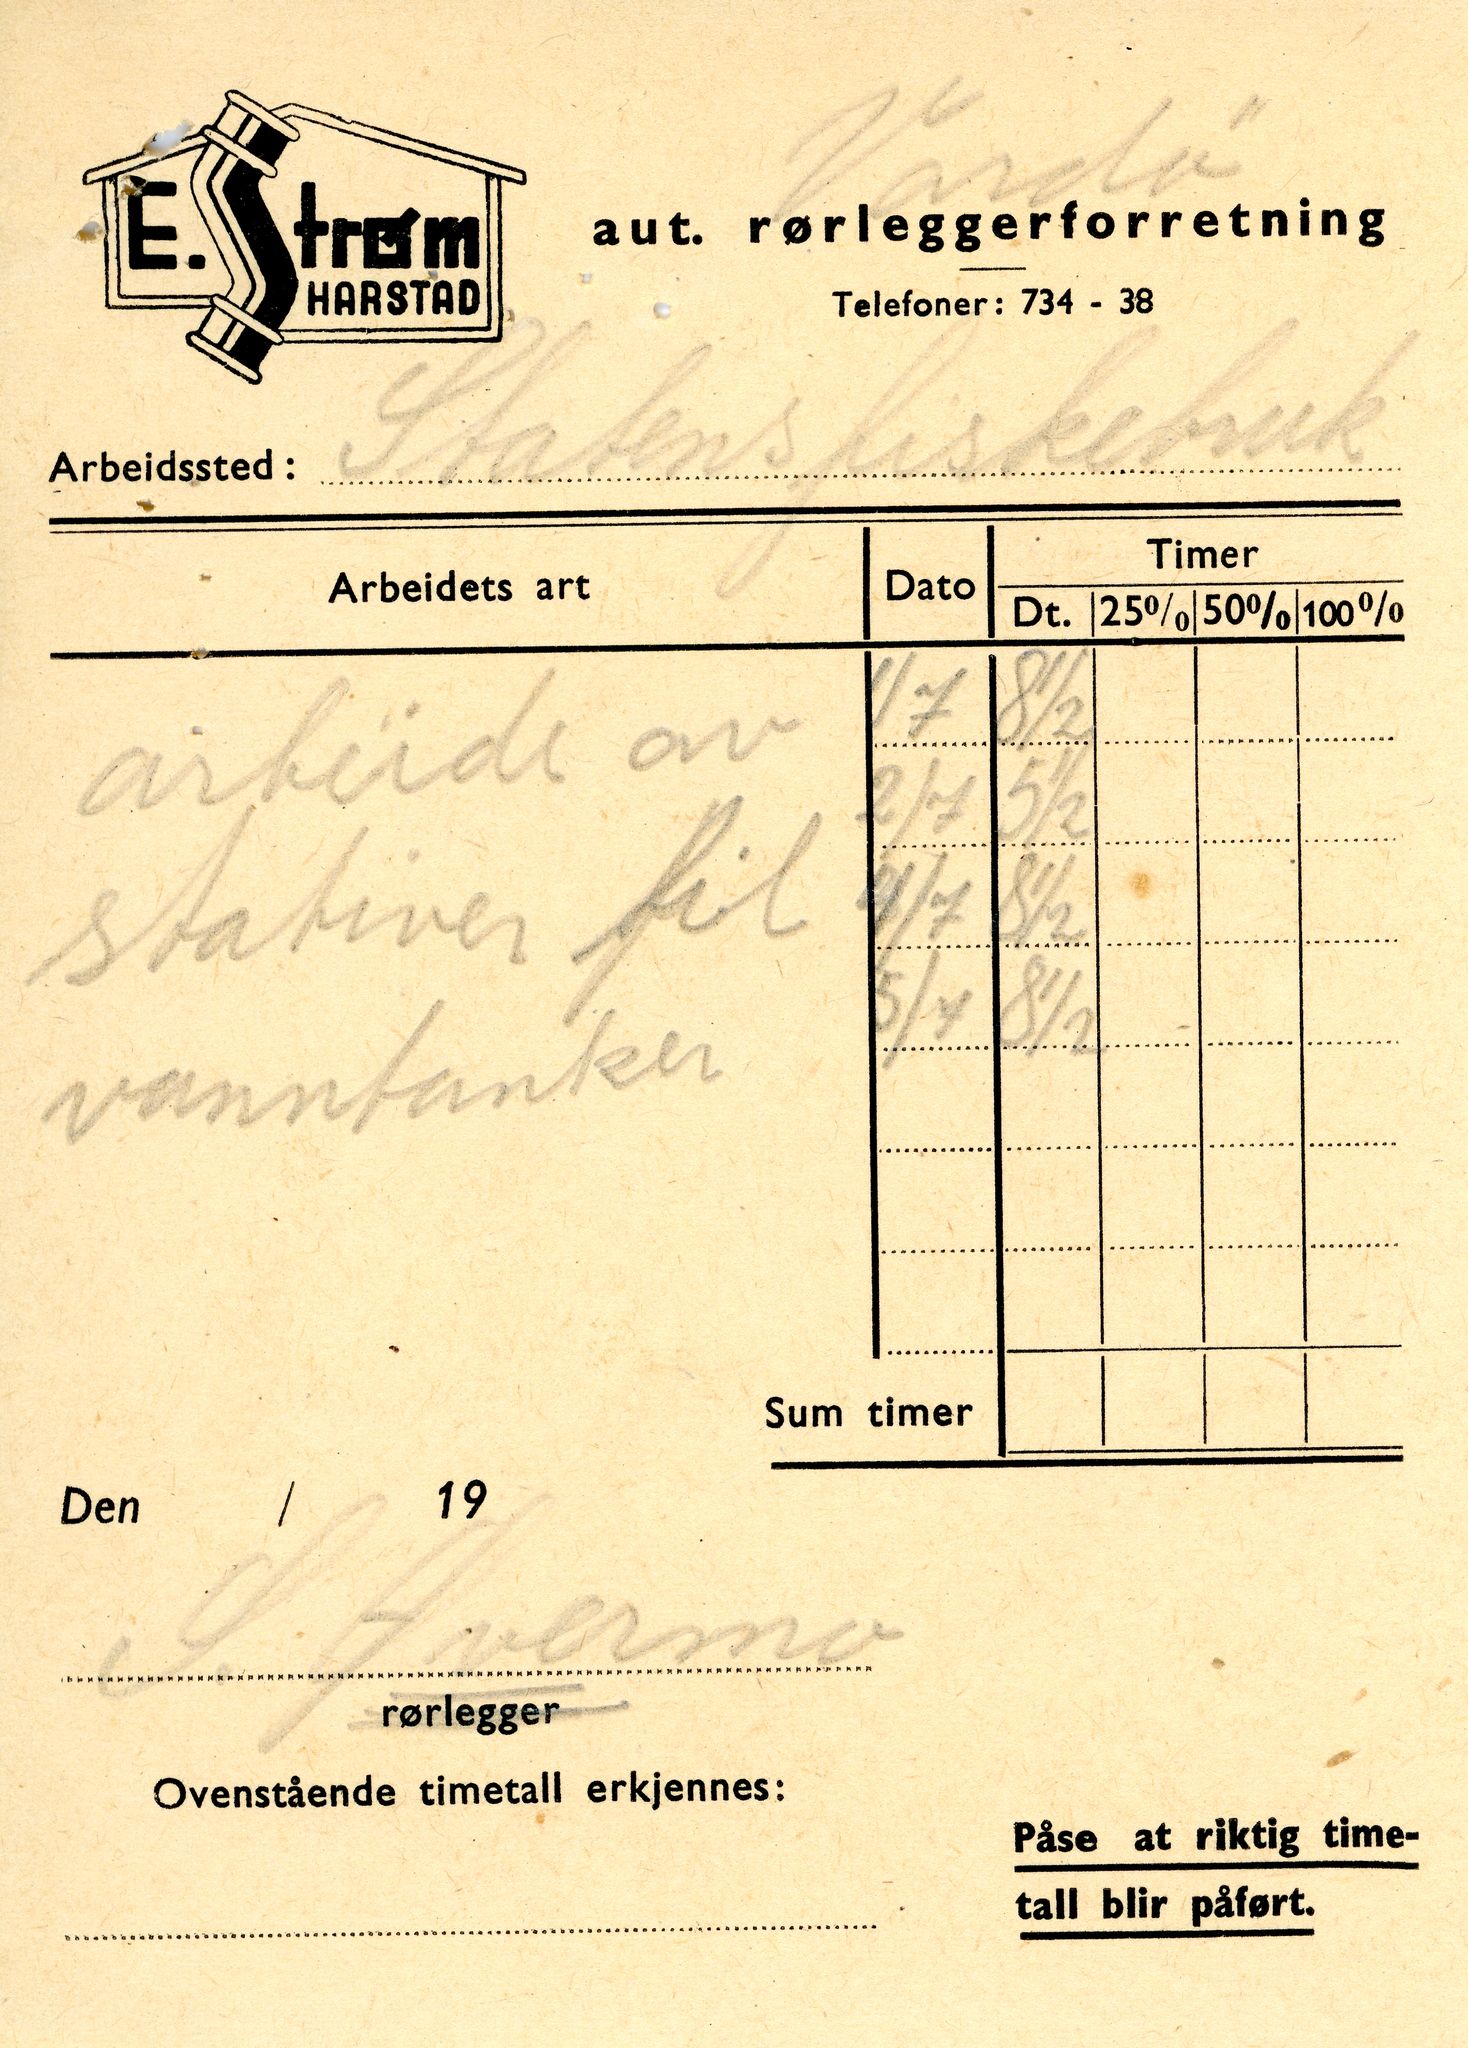 Vardö
E. Strøm
HARSTAD
aut. rørleggerforretning
Telefoner: 734 - 38
Arbeidssted: Statens fiskebruk
Arbeidets art Dato Timer
Dt. 25% 50% 100%
1/7 8 1/2
arbeide av
2/7 5 1/2
stativer til
4/7 8 1/2
5/7 8 1/2
vanntanker
Sum timer
Den / 19
S. Hvermo
rørlegger
Ovenstående timetall erkjennes:
Påse at riktig time-
tall blir påført.